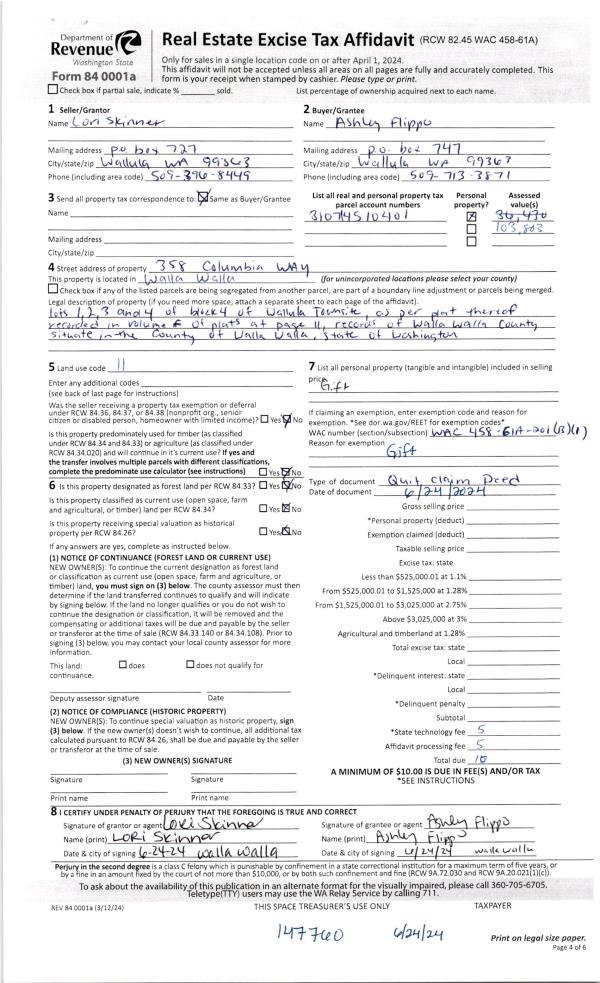 Department of
Revenue
Washington State
Form 84 0001a
Real Estate Excise Tax Affidavit (RCW 82.45 WAC 458-61A)
Only for sales in a single location code on or after April 1, 2024.
This affidavit will not be accepted unless all areas on all pages are fully and accurately completed. This
form is your receipt when stamped by cashier. Please type or print.
Check box if partial sale, indicate % ______ sold.
List percentage of ownership acquired next to each name.
1 Seller/Grantor
Name Lori Skinner
Mailing address p.o. box 727
City/state/zip Wallula WA 99363
Phone (including area code) 509-396-8449
2 Buyer/Grantee
Name Ashley Flippo
Mailing address p.o. box 747
City/state/zip Wallula WA 99363
Phone (including area code) 509-713-3871
3 Send all property tax correspondence to: Same as Buyer/Grantee
Name
Mailing address
City/state/zip
List all real and personal property tax
parcel account numbers
Personal
property?
Assessed
value(s)
310745510401
36,470
103,803
4 Street address of property 358 Columbia WAY
This property is located in Walla Walla (for unincorporated locations please select your county)
Check box if any of the listed parcels are being segregated from another parcel, are part of a boundary line adjustment or parcels being merged.
Legal description of property (if you need more space, attach a separate sheet to each page of the affidavit).
lots 1,2,3 and 4 of block 4 of Wallula Townsite, as per plat thereof
recorded in volume F of plats at page 11, records of Walla Walla County
situate in the County of Walla Walla, State of Washington
5 Land use code 11
Enter any additional codes
(see back of last page for instructions)
Was the seller receiving a property tax exemption or deferral
under RCW 84.36, 84.37, or 84.38 (nonprofit org., senior
citizen or disabled person, homeowner with limited income)? Yes No
Is this property predominately used for timber (as classified
under RCW 84.34 and 84.33) or agriculture (as classified under
RCW 84.34.020) and will continue in it's current use? If yes and
the transfer involves multiple parcels with different classifications,
complete the predominate use calculator (see instructions) Yes No
6 Is this property designated as forest land per RCW 84.33? Yes No
Is this property classified as current use (open space, farm
and agricultural, or timber) land per RCW 84.34? Yes No
Is this property receiving special valuation as historical
property per RCW 84.26? Yes No
If any answers are yes, complete as instructed below.
(1) NOTICE OF CONTINUANCE (FOREST LAND OR CURRENT USE)
NEW OWNER(S): To continue the current designation as forest land
or classification as current use (open space, farm and agriculture, or
timber) land, you must sign on (3) below. The county assessor must then
determine if the land transferred continues to qualify and will indicate
by signing below. If the land no longer qualifies or you do not wish to
continue the designation or classification, it will be removed and the
compensating or additional taxes will be due and payable by the seller
or transferor at the time of sale (RCW 84.33.140 or 84.34.108). Prior to
signing (3) below, you may contact your local county assessor for more
information.
This land: does does not qualify for
continuance.
Deputy assessor signature Date
(2) NOTICE OF COMPLIANCE (HISTORIC PROPERTY)
NEW OWNER(S): To continue special valuation as historic property, sign
(3) below. If the new owner(s) doesn't wish to continue, all additional tax
calculated pursuant to RCW 84.26, shall be due and payable by the seller
or transferor at the time of sale.
(3) NEW OWNER(S) SIGNATURE
Signature Signature
Print name Print name
7 List all personal property (tangible and intangible) included in selling
price.
Gift
If claiming an exemption, enter exemption code and reason for
exemption. *See dor.wa.gov/REET for exemption codes*
WAC number (section/subsection) WAC 458-61A-201(B)(1)
Reason for exemption
Gift
Type of document Quit Claim Deed
Date of document 6/24/2024
Gross selling price
*Personal property (deduct)
Exemption claimed (deduct)
Taxable selling price
Excise tax: state
Less than $525,000.01 at 1.1%
From $525,000.01 to $1,525,000 at 1.28%
From $1,525,000.01 to $3,025,000 at 2.75%
Above $3,025,000 at 3%
Agricultural and timberland at 1.28%
Total excise tax: state
Local
*Delinquent interest: state
Local
*Delinquent penalty
Subtotal
*State technology fee 5
Affidavit processing fee 5
Total due 10
A MINIMUM OF $10.00 IS DUE IN FEE(S) AND/OR TAX
*SEE INSTRUCTIONS
8 I CERTIFY UNDER PENALTY OF PERJURY THAT THE FOREGOING IS TRUE AND CORRECT
Signature of grantor or agent Lori Skinner
Name (print) LORi Skinner
Date & city of signing 6-24-24 walla walla
Signature of grantee or agent Ashley Flippo
Name (print) Ashley Flippo
Date & city of signing 6/24/24 walla walla
Perjury in the second degree is a class C felony which is punishable by confinement in a state correctional institution for a maximum term of five years, or
by a fine in an amount fixed by the court of not more than $10,000, or by both such confinement and fine (RCW 9A.72.030 and RCW 9A.20.021(1)(c)).
To ask about the availability of this publication in an alternate format for the visually impaired, please call 360-705-6705.
Teletype(TTY) users may use the WA Relay Service by calling 711.
REV 84 0001a (3/12/24)
THIS SPACE TREASURER'S USE ONLY
TAXPAYER
147760 6/24/24
Print on legal size paper.
Page 4 of 6